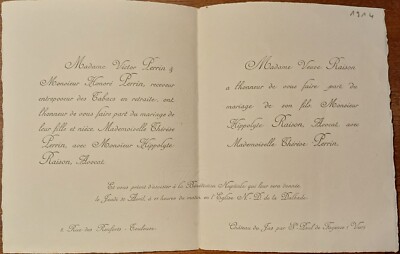 1914
Madame Victor Perrin &
Monsieur Honoré Perrin, receveur
entreposeur des Tabacs en retraite, ont
l'honneur de vous faire part du mariage de
leur fille et nièce, Mademoiselle Thérèse
Perrin, avec Monsieur Hippolyte
Raison, Avocat.
Madame Veuve Raison
a l'honneur de vous faire part du
mariage de son fils, Monsieur
Hippolyte Raison, Avocat, avec
Mademoiselle Thérèse Perrin.
Et vous prient d'assister à la Bénédiction Nuptiale qui leur sera donnée
le Jeudi Avril, à heures du matin, en l'Église N. D. de la
Rue des Toulouse
Château du par St Paul de